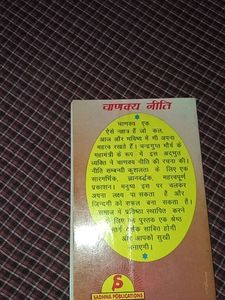 चाणक्य नीति
चाणक्य एक
ऐसे नक्षत्र हैं जो कल,
आज और भविष्य में भी अपना
महत्व रखते हैं। चन्द्रगुप्त मौर्य के
महामंत्री के रूप में इस अद्भुत
व्यक्ति ने चाणक्य नीति की रचना की।
नीति सम्बन्धी कुशलता के लिए एक
सारगर्भित, ज्ञानवर्द्धक, महत्वपूर्ण
प्रकाशन। मनुष्य इस पर चलकर
अपना लक्ष्य पा सकता है और
जिन्दगी को सफल बना सकता है।
समाज में प्रतिष्ठा स्थापित करने
के लिए यह पुस्तक एक श्रेष्ठ
मार्ग दर्शक साबित होगी
और आपको सुखी
बनाएगी।
SADHNA PUBLICATIONS